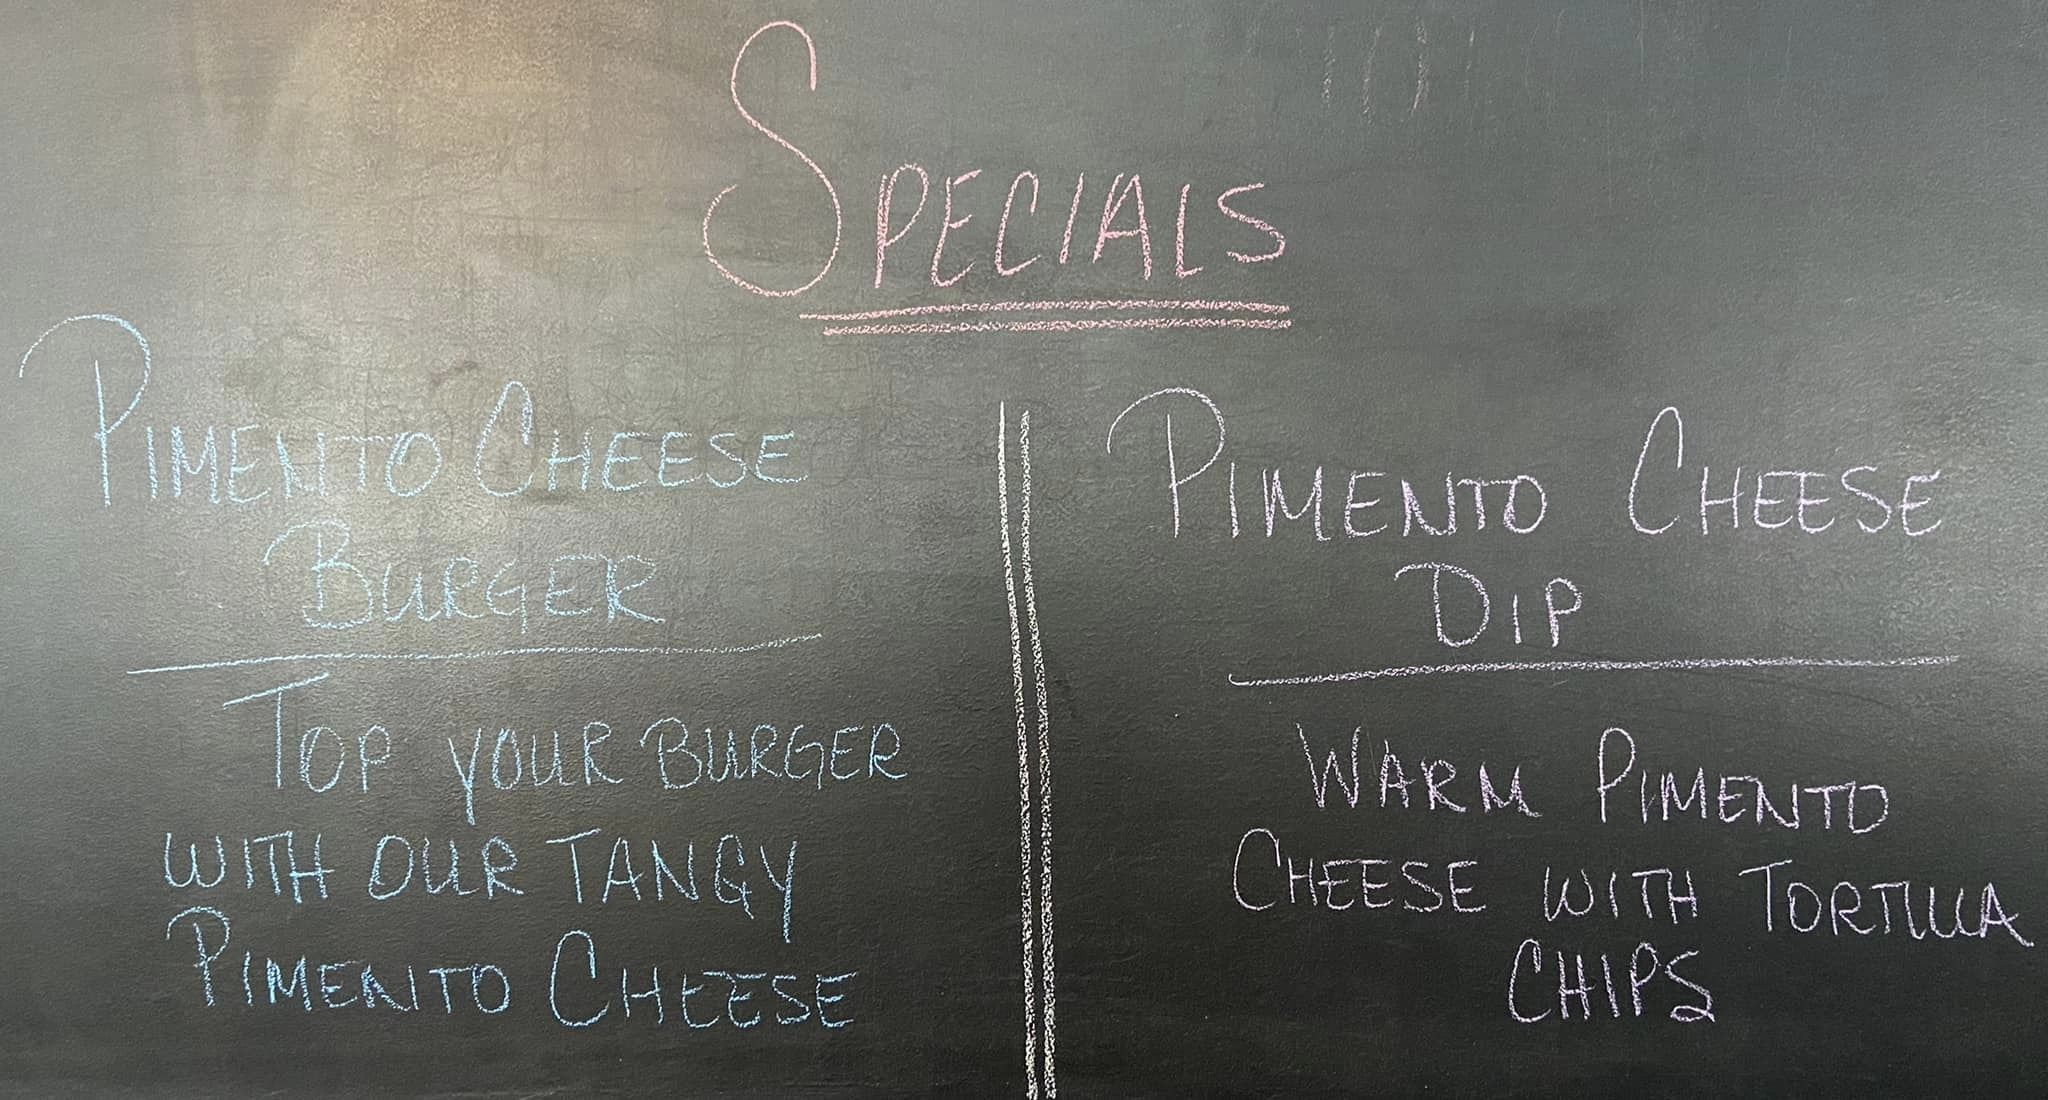 SPECIALS
PIMENTO CHEESE
BURGER
TOP YOUR BURGER
WITH OUR TANGY
PIMENTO CHEESE
PIMENTO CHEESE
DIP
WARM PIMENTO
CHEESE WITH TORTILLA
CHIPS